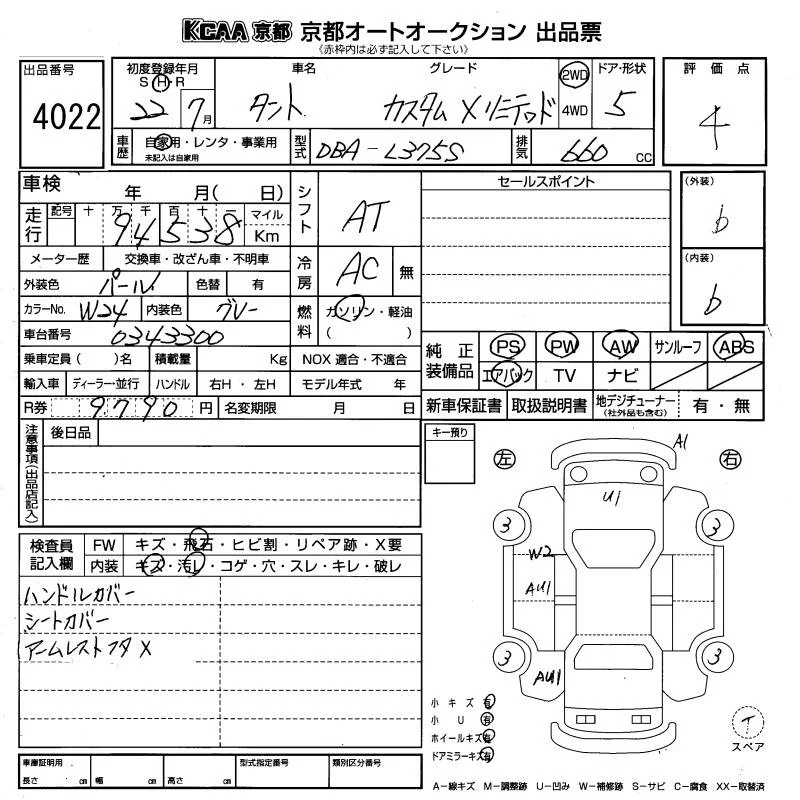 KCAA 京都 京都オートオークション 出品票
《赤枠内は必ず記入して下さい》
出品番号
4022
初度登録年月 車名 グレード 2WD ドア・形状
S H R
22 7月 タント カスタム Xリミテッド 4WD 5
車歴 自家用・レンタ・事業用 型式 DBA-L375S 排気 660 CC
未記入は自家用
評価点
4
車検 年 月( 日) シフト AT
走行 記号 十 万 千 百 十 一 マイル
94538 Km
メーター歴 交換車・改ざん車・不明車 冷房 AC 無
外装色 パール 色替 有
カラーNo. W24 内装色 グレー 燃料 ガソリン・軽油
( )
車台番号 0343300
乗車定員( )名 積載量 Kg NOX 適合・不適合
輸入車 ディーラー・並行 ハンドル 右H・左H モデル年式 年
R券 9790 円 名変期限 月 日
セールスポイント
(外装)
b
(内装)
b
純正装備品 PS PW AW サンルーフ ABS
エアバック TV ナビ
新車保証書 取扱説明書 地デジチューナー 有・無
(社外品も含む)
注意事項(出品店記入) 後日品
キー預り
検査員記入欄 FW キズ・飛石・ヒビ割・リペア跡・X要
内装 キズ・汚レ・コゲ・穴・スレ・キレ・破レ
ハンドルカバー
シートカバー
アームレストフタ X
左 右
A1
U1
3 3
W2
AU1
3 3
AU1
小キズ 有
小U 有
ホイールキズ 有
ドアミラーキズ 有
スペア
車庫証明用 型式指定番号 類別区分番号
長さ cm 幅 cm 高さ cm
A-線キズ M-調整跡 U-凹み W-補修跡 S-サビ C-腐食 XX-取替済